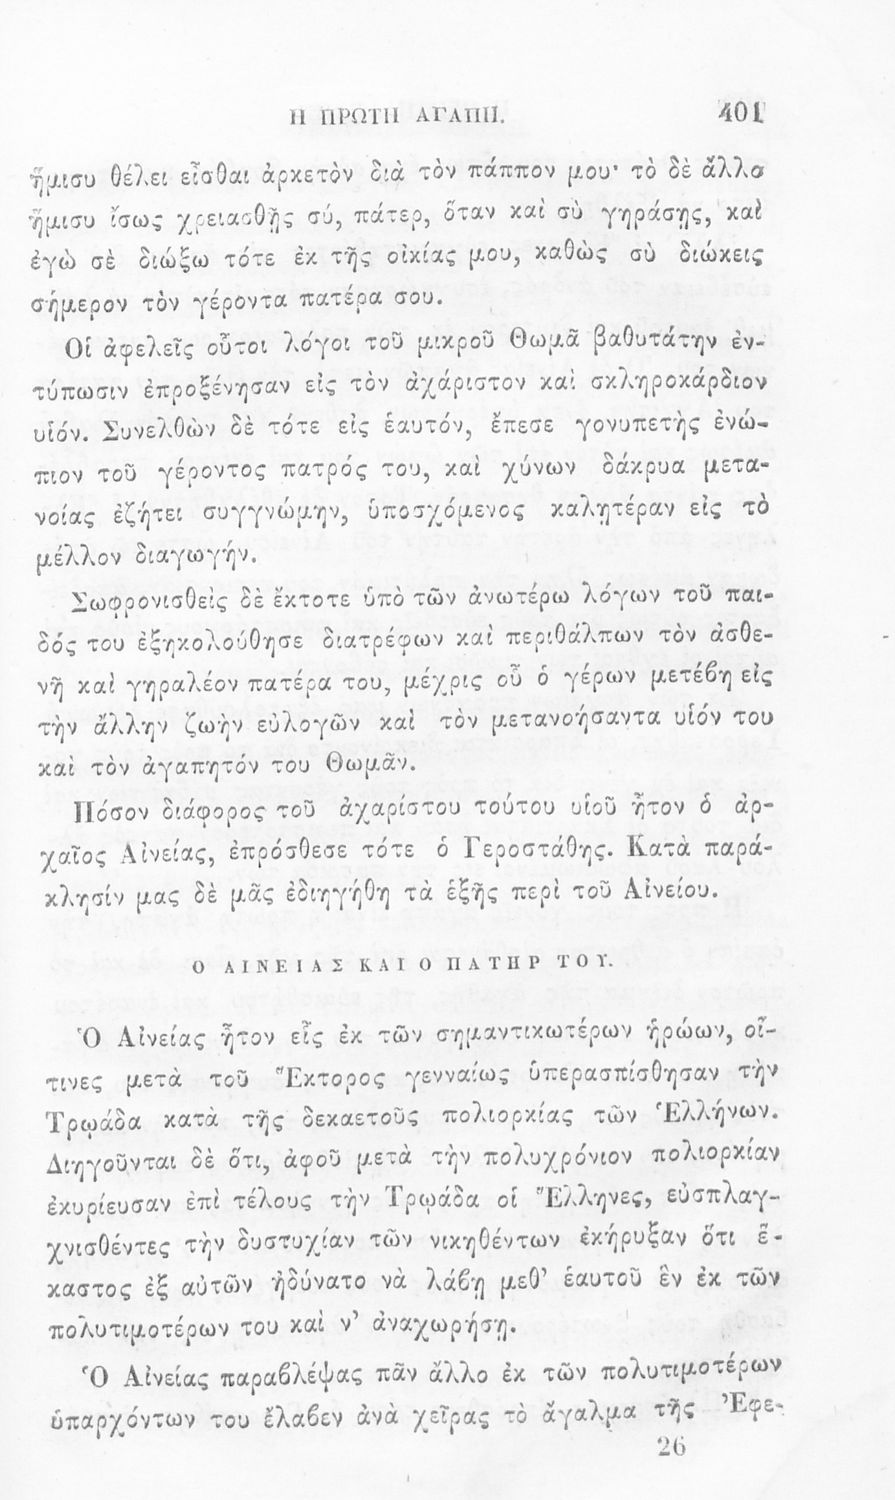 Η ΠΡΩΤΗ ΑΓΑΠΗ. 401
ἥμισυ θέλει εἶσθαι ἀρκετὸν διὰ τὸν πάππον μου· τὸ δὲ ἄλλο
ἥμισυ ἴσως χρειασθῇς σύ, πάτερ, ὅταν καὶ σὺ γηράσῃς, καὶ
ἐγὼ σὲ διώξω τότε ἐκ τῆς οἰκίας μου, καθὼς σὺ διώκεις
σήμερον τὸν γέροντα πατέρα σου.
Οἱ ἀφελεῖς οὗτοι λόγοι τοῦ μικροῦ Θωμᾶ βαθυτάτην ἐν-
τύπωσιν ἐπροξένησαν εἰς τὸν ἀχάριστον καὶ σκληροκάρδιον
υἱόν. Συνελθὼν δὲ τότε εἰς ἑαυτόν, ἔπεσε γονυπετὴς ἐνώ-
πιον τοῦ γέροντος πατρός του, καὶ χύνων δάκρυα μετα-
νοίας ἐζήτει συγγνώμην, ὑποσχόμενος καλητέραν εἰς τὸ
μέλλον διαγωγήν.
Σωφρονισθεὶς δὲ ἔκτοτε ὑπὸ τῶν ἀνωτέρω λόγων τοῦ παι-
δός του ἐξηκολούθησε διατρέφων καὶ περιθάλπων τὸν ἀσθε-
νῆ καὶ γηραλέον πατέρα του, μέχρις οὗ ὁ γέρων μετέβη εἰς
τὴν ἄλλην ζωὴν εὐλογῶν καὶ τὸν μετανοήσαντα υἱόν του
καὶ τὸν ἀγαπητόν του Θωμᾶν.
Πόσον διάφορος τοῦ ἀχαρίστου τούτου υἱοῦ ἦτον ὁ ἀρ-
χαῖος Αἰνείας, ἐπρόσθεσε τότε ὁ Γεροστάθης. Κατὰ παρά-
κλησίν μας δὲ μᾶς ἐδιηγήθη τὰ ἑξῆς περὶ τοῦ Αἰνείου.
Ο ΑΙΝΕΙΑΣ ΚΑΙ Ο ΠΑΤΗΡ ΤΟΥ.
Ὁ Αἰνείας ἦτον εἷς ἐκ τῶν σημαντικωτέρων ἡρώων, οἵ-
τινες μετὰ τοῦ Ἕκτορος γενναίως ὑπερασπίσθησαν τὴν
Τρωάδα κατὰ τῆς δεκαετοῦς πολιορκίας τῶν Ἑλλήνων.
Διηγοῦνται δὲ ὅτι, ἀφοῦ μετὰ τὴν πολυχρόνιον πολιορκίαν
ἐκυρίευσαν ἐπὶ τέλους τὴν Τρῳάδα οἱ Ἕλληνες, εὐσπλαγ-
χνισθέντες τὴν δυστυχίαν τῶν νικηθέντων ἐκήρυξαν ὅτι ἕ-
καστος ἐξ αὐτῶν ἠδύνατο νὰ λάβῃ μεθ' ἑαυτοῦ ἓν ἐκ τῶν
πολυτιμοτέρων του καὶ ν' ἀναχωρήσῃ.
Ὁ Αἰνείας παραβλέψας πᾶν ἄλλο ἐκ τῶν πολυτιμοτέρων
ὑπαρχόντων του ἔλαβεν ἀνὰ χεῖρας τὸ ἄγαλμα τῆς Ἐφε-
26